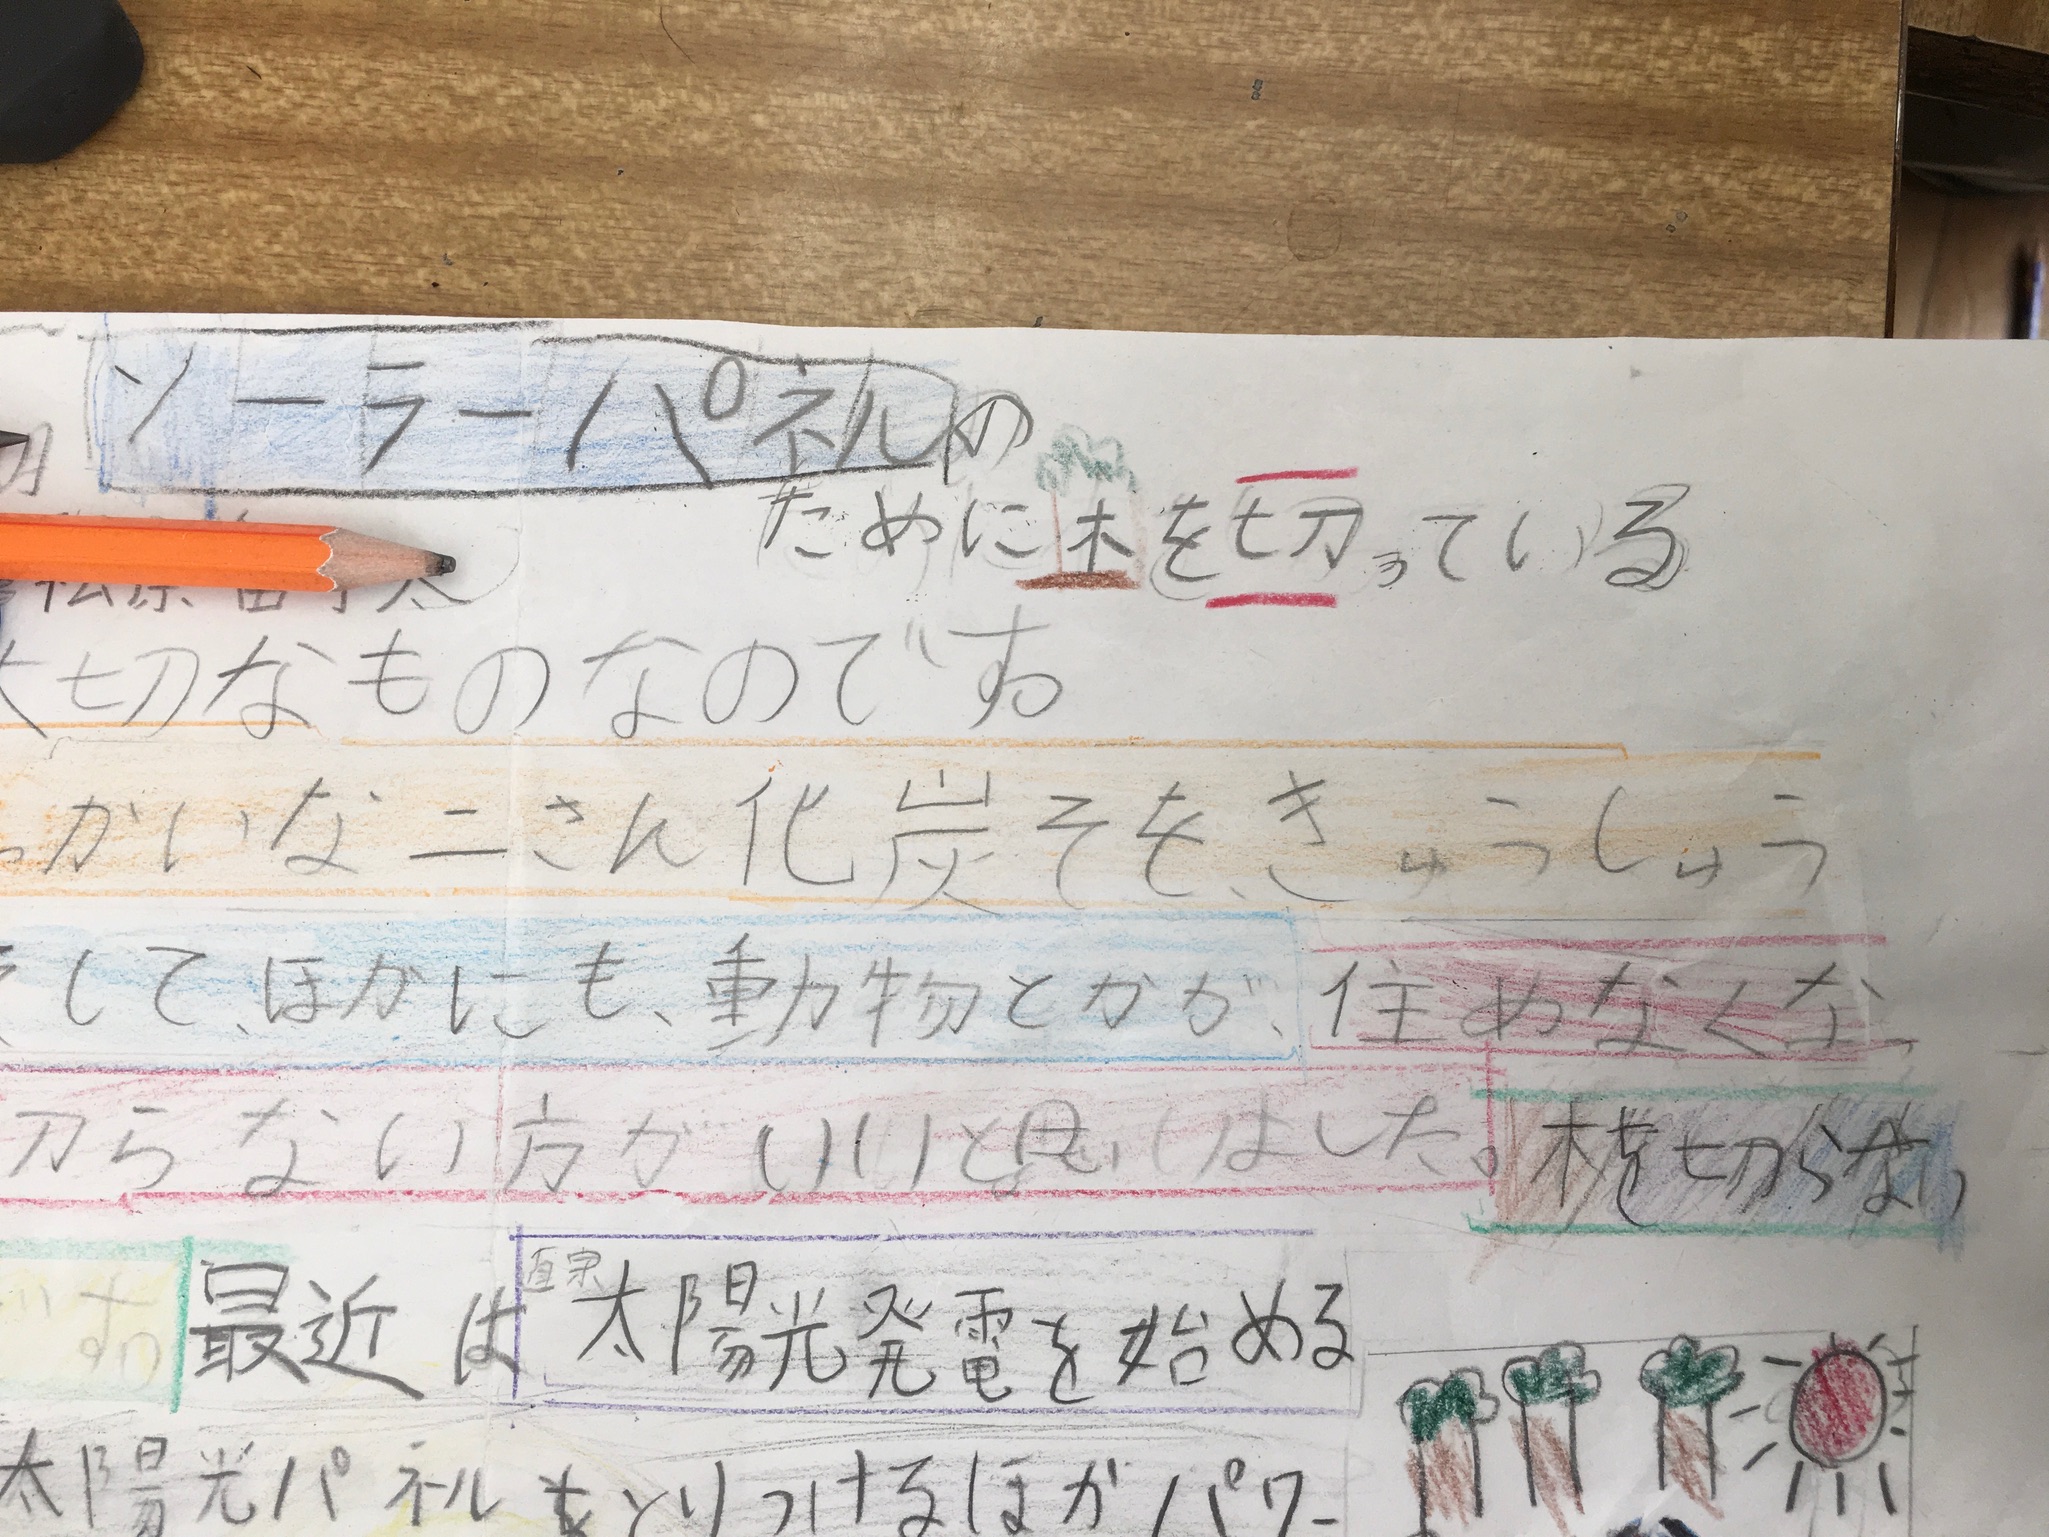 切 ソーラーパネルの
ために木を切っている
松原
大切なものなのです。
っかいな二さん化炭そを、きゅうしゅう
そして、ほかにも、動物とかが、住めなくな
切らない方がいいと思いました。木を切らない
です。最近は太陽光発電を始める
太陽光パネルをとりつけるほかパワー